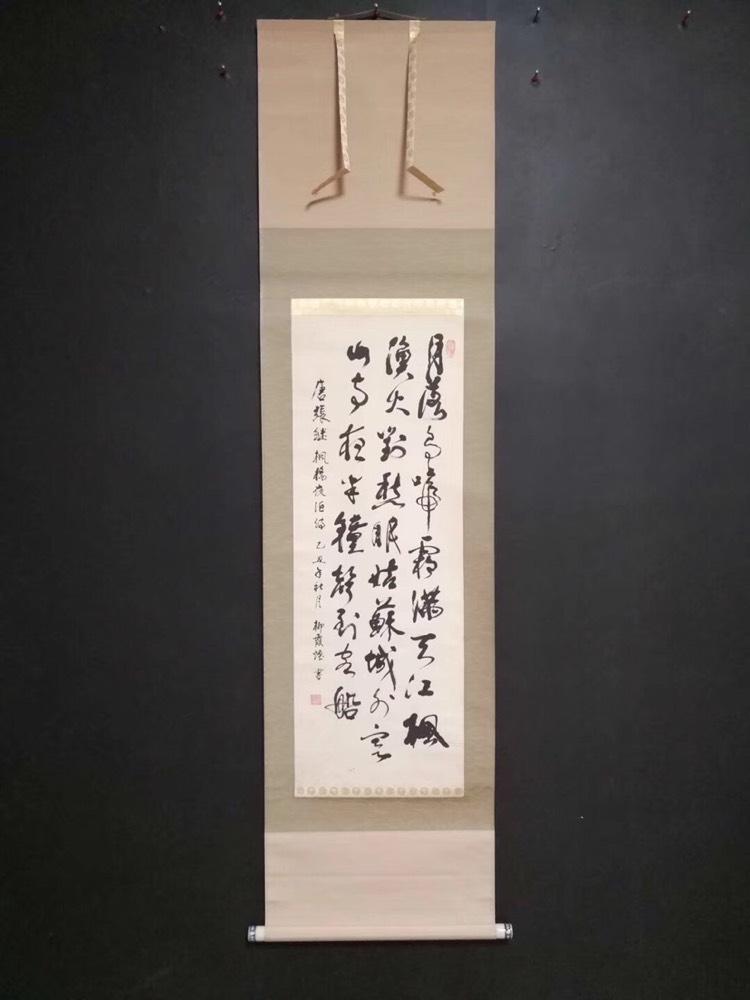 月落烏啼霜滿天江楓
漁火對愁眠姑蘇城外寒
山寺夜半鐘聲到客船
唐張継楓橋夜泊詩 乙丑年秋月 柳霞 書